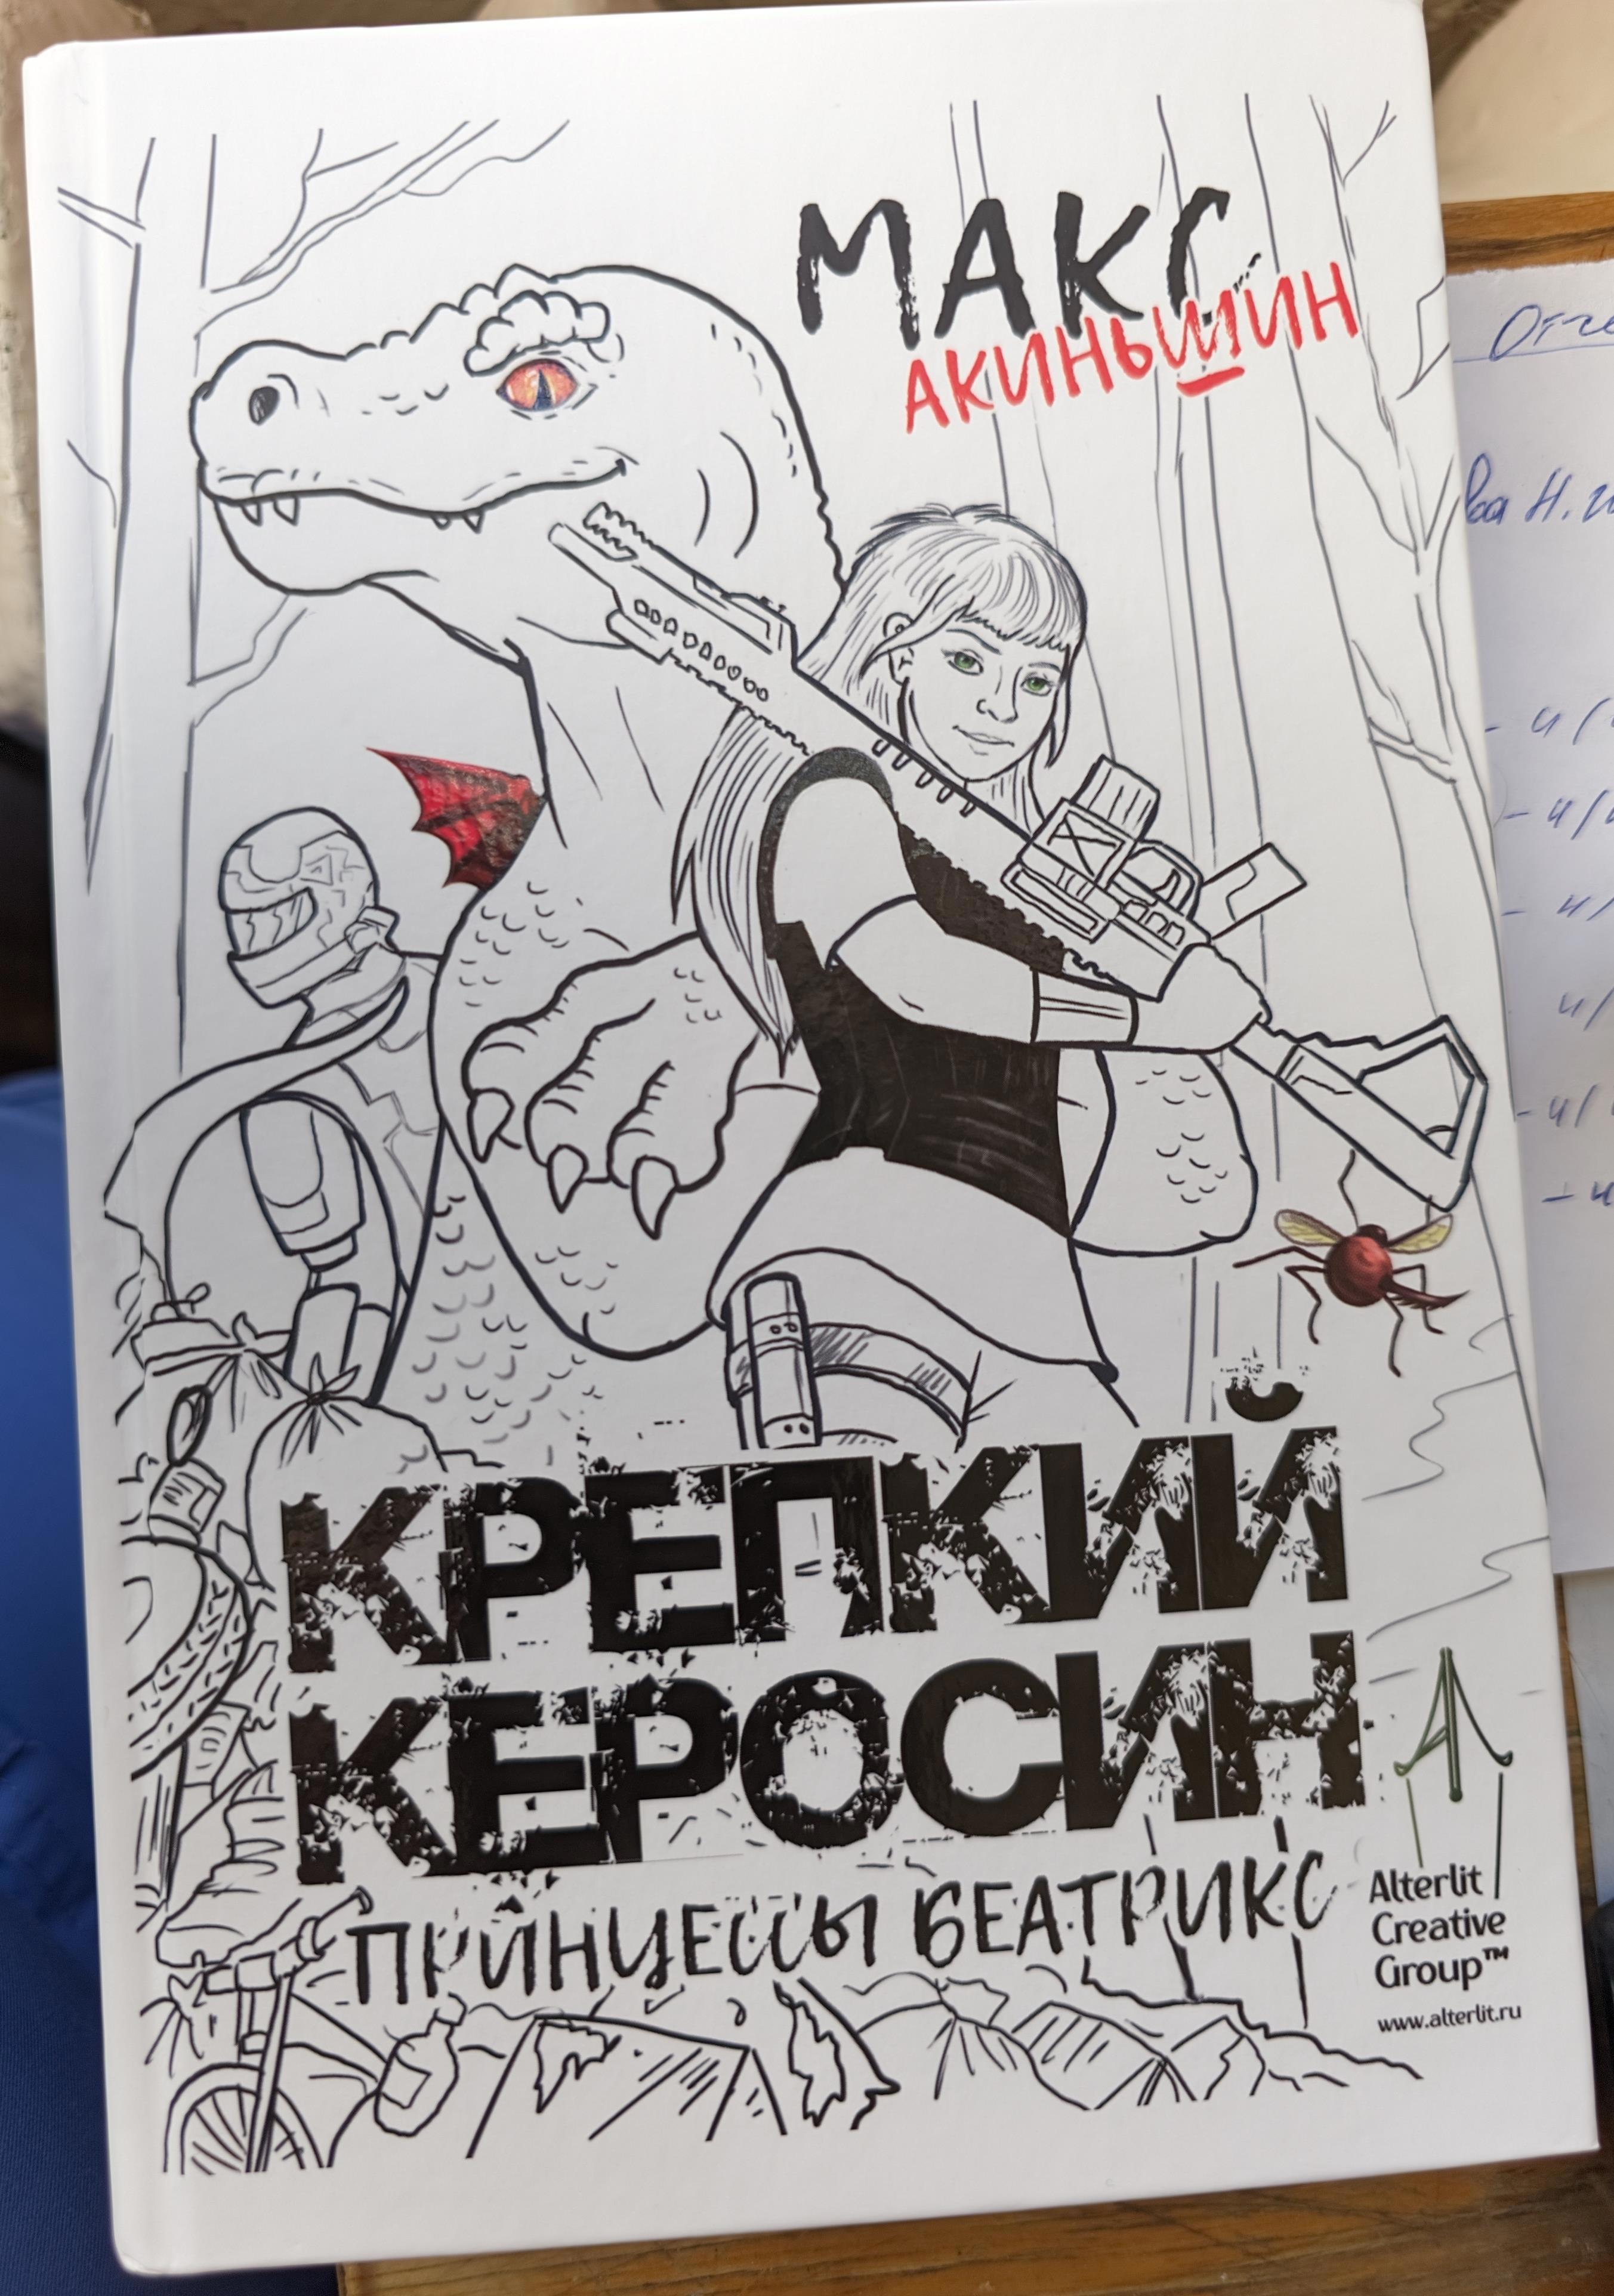 МАКС
АКИНЬШИН
КРЕПКИЙ
КЕРОСИН
ПРИНЦЕССЫ БЕАТРИКС
Alterlit
Creative
Group™
www.alterlit.ru